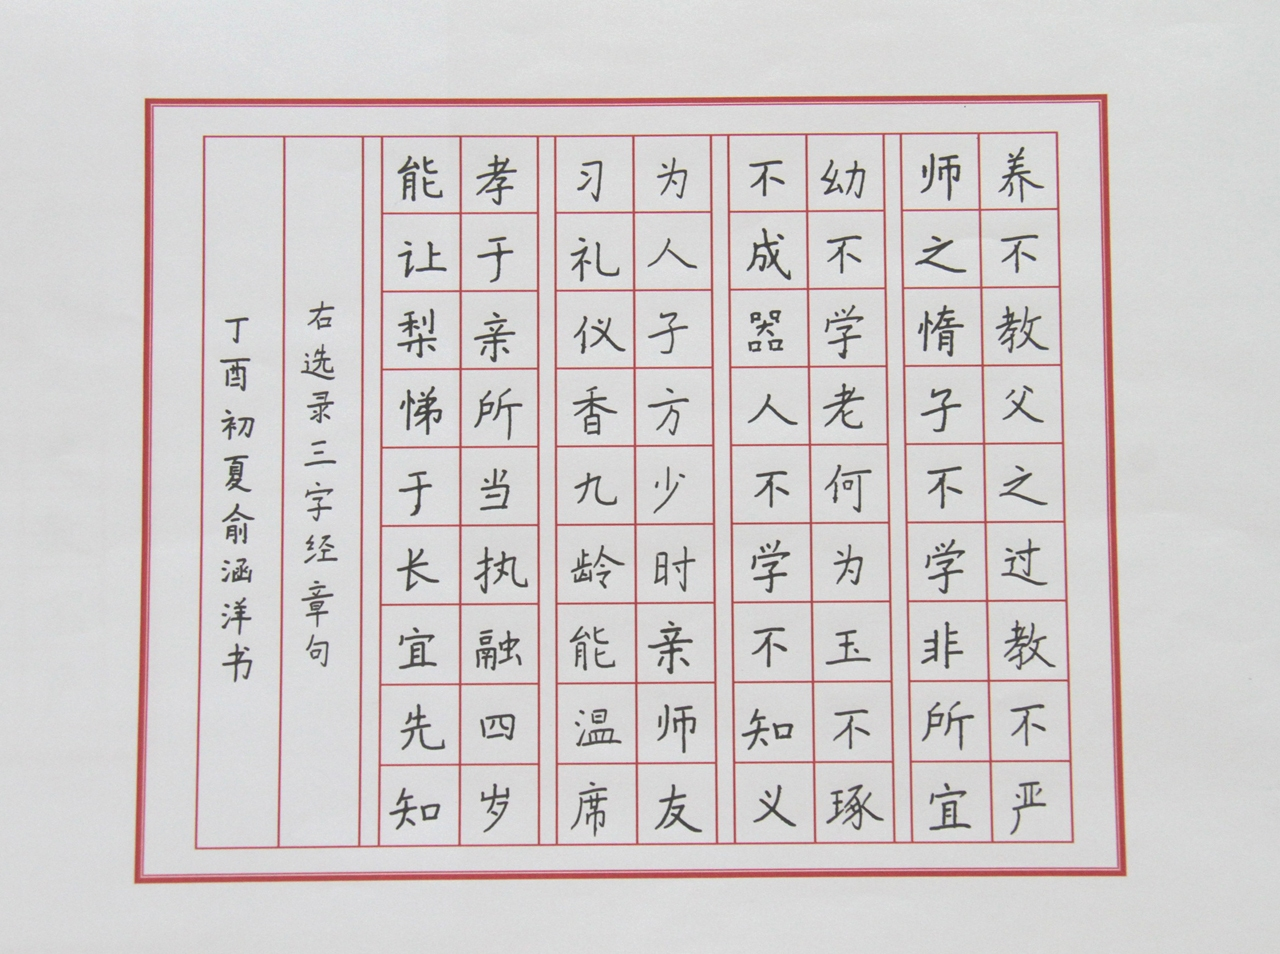 养不教父之过教不严
师之惰子不学非所宜
幼不学老何为玉不琢
不成器人不学不知义
为人子方少时亲师友
习礼仪香九龄能温席
孝于亲所当执融四岁
能让梨悌于长宜先知
右选录三字经章句
丁酉初夏俞涵洋书